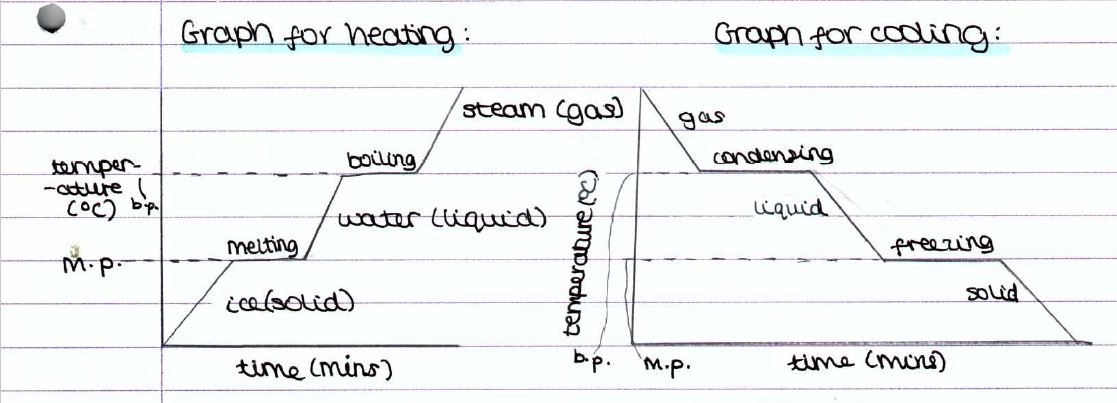 Graph for heating:
Graph for cooling:
steam (gas)
boiling
temper-
-ature
(°C) b.p.
water (liquid)
melting
m.p.
ice (solid)
time (mins)
gas
condensing
liquid
temperature (°C)
freezing
solid
b.p.
m.p.
time (mins)